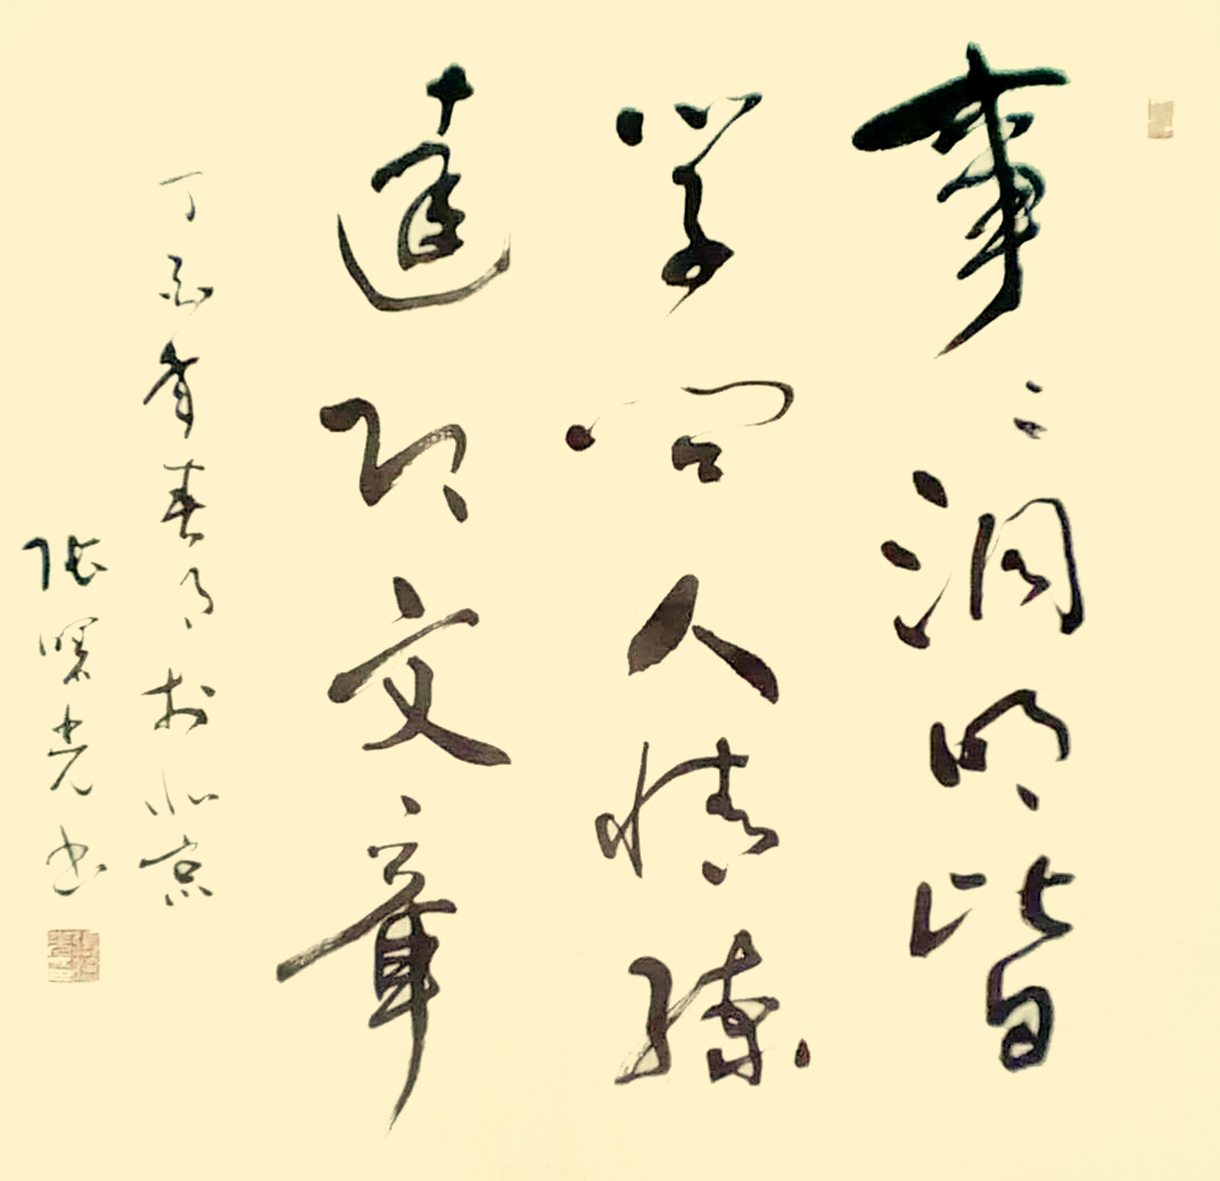 事々洞明皆
学问人情练
达即文章
丁酉年春月于北京
张曙光书